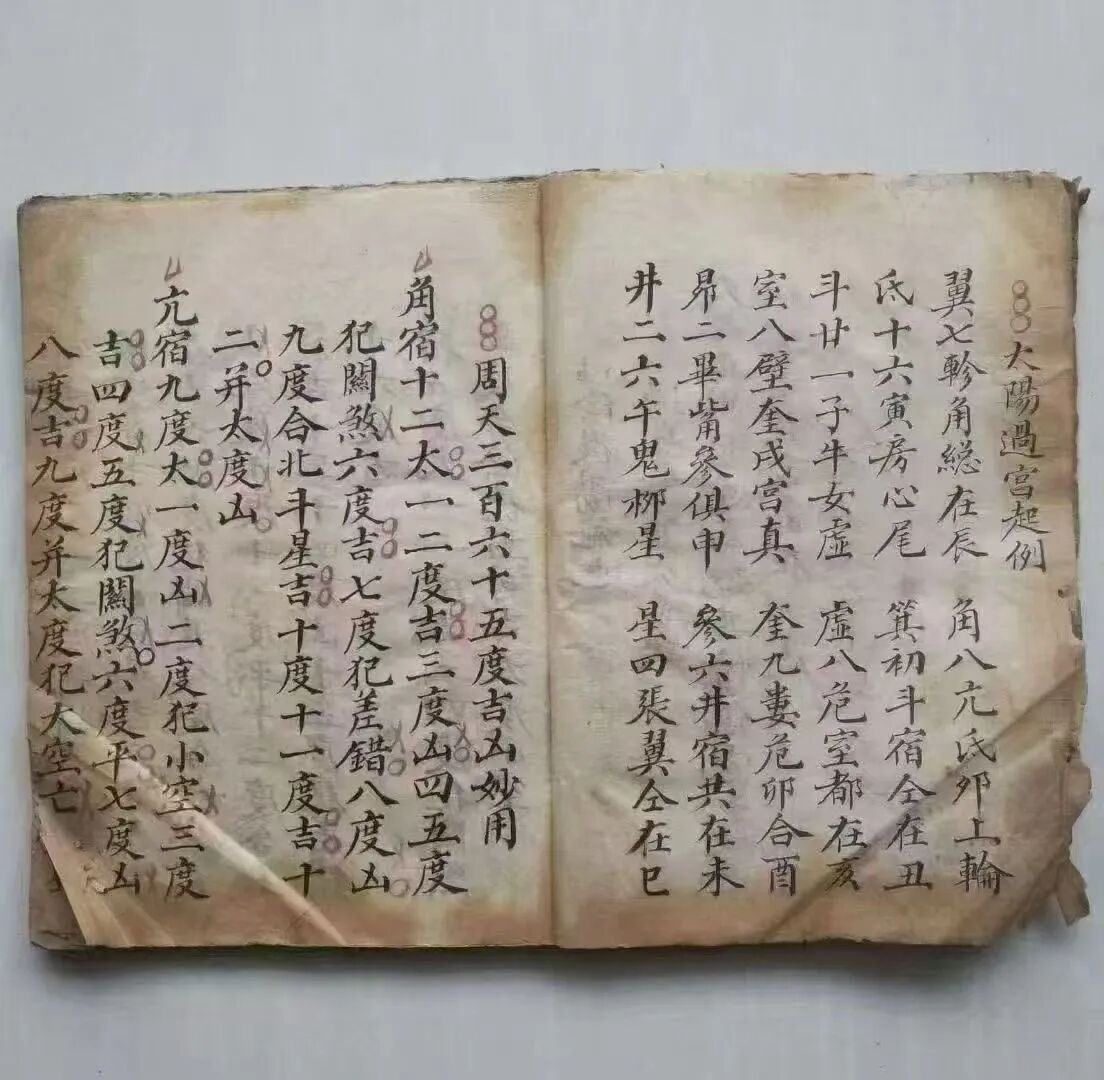 太陽過宫起例
翼七軫角総在辰 角八亢氐卯上輪
氐十六寅房心尾 箕初斗宿仝在丑
斗廿一子牛女虛 虛八危室都在亥
室八壁奎戌宫真 奎九婁危卯合酉
昴二畢觜參俱申 參六井宿共在未
井二六午鬼柳星 星四張翼仝在巳
周天三百六十五度吉凶妙用
角宿十二太一二度吉三度凶四五度
犯關煞六度吉七度犯差錯八度凶
九度合北斗星吉十度十一度吉十
二并太度凶
亢宿九度太一度凶二度犯小空三度
吉四度五度犯關煞六度平七度凶
八度吉九度并太度犯大空亡